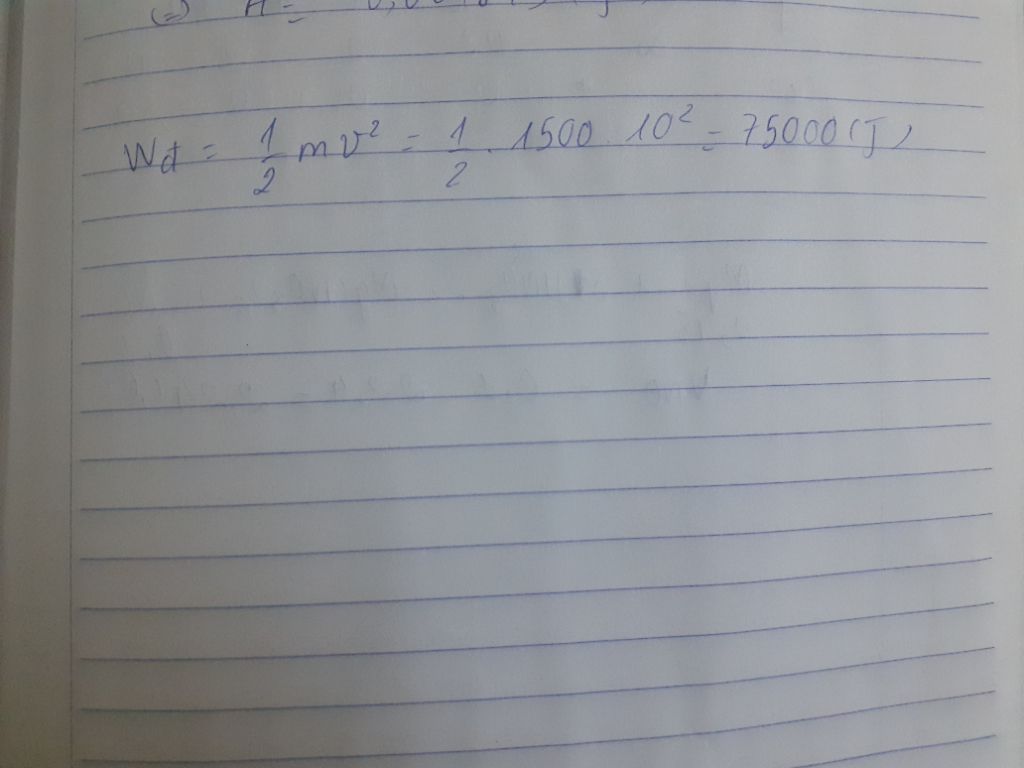 (=) A =
Wđ = 1/2 mv² = 1/2 . 1500 . 10² = 75000 (J)